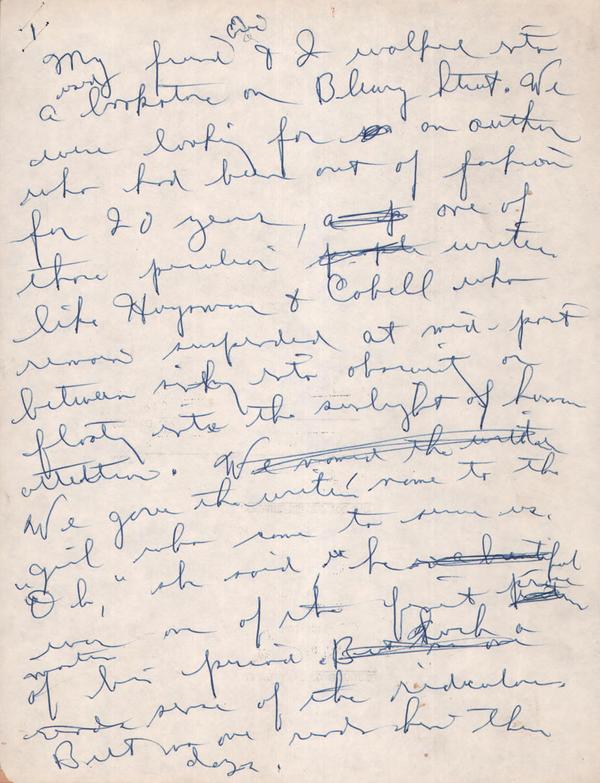 1
My friend & I walked into
a used bookstore on Bleury Street. We
were looking for an author
who had been out of fashion
for 20 years, one of
those peculiar people writers
like Huysman & Cabell who
remain suspended at mid-point
between sinking into obscurity or
floating into the sunlight of human
attention. We named the writer
We gave the writer's name to the
girl who came to serve us.
"Oh," she said, "he was a beautiful
was one of the great prose
of his period. But Such a
sense of the ridiculous.
But no one reads him these
days.